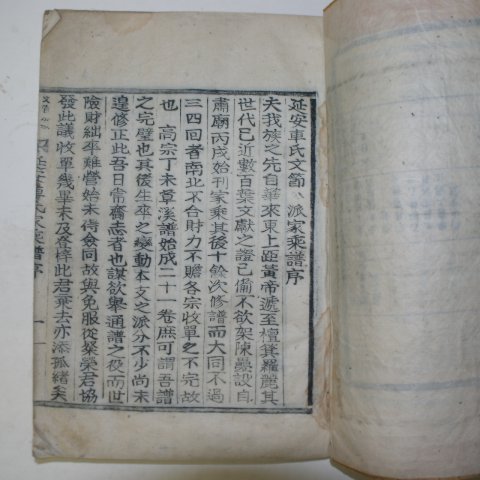 延安車氏文節公派家乘譜序
夫我族之先自華來東上距黃帝遞至檀箕羅麗其
世代已近數百葉文獻之證已備不欲架陳疊設自
肅廟丙戌始刊家乘其後十餘次修譜而大同不過
三四回者南北不合財力不贍各宗收單之不完故
也 高宗丁未章溪譜始成二十一卷庶可謂吾譜
之完璧也其後生卒之變動本支之派分不少尚未
遑修正此吾日常齋志者也謀欲舉通譜之役而世
險財絀卒難營始未待僉同故與免服從粲榮君協
發此議收單幾畢未及登梓此君乘去亦添孤緒矣